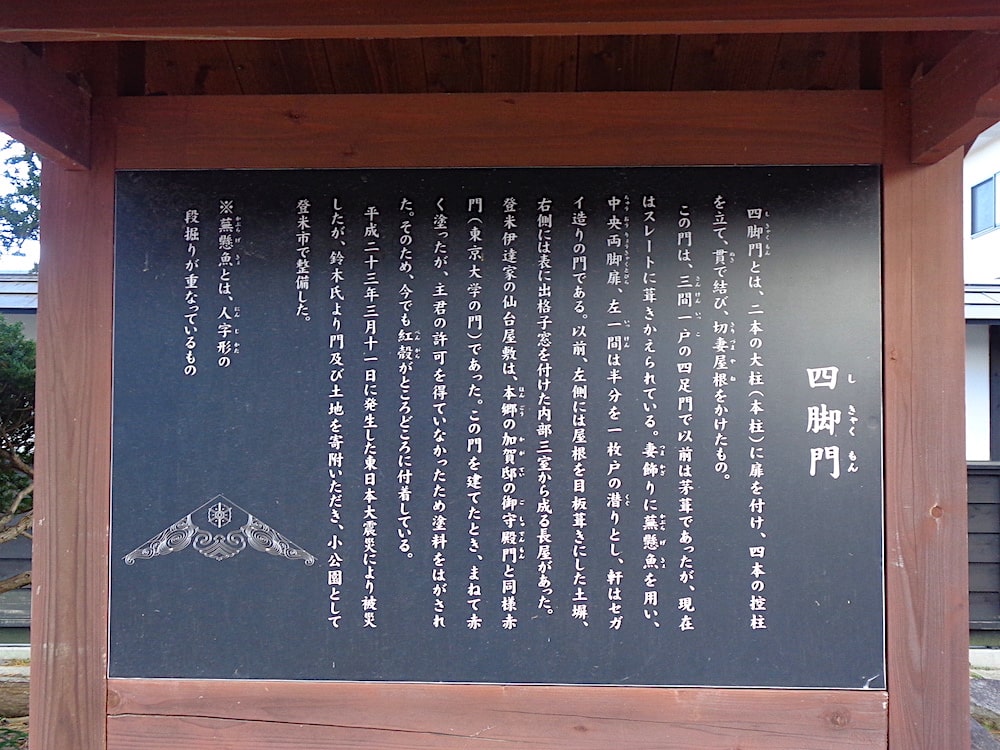 四脚門
四脚門とは、二本の大柱(本柱)に扉を付け、四本の控柱
を立て、貫で結び、切妻屋根をかけたもの。
この門は、三間一戸の四足門で以前は茅葺であったが、現在
はスレートに葺きかえられている。妻飾りに蕪懸魚を用い、
中央両脚扉、左一間は半分を一枚戸の潜りとし、軒はセガ
イ造りの門である。以前、左側には屋根を目板葺きにした土塀、
右側には表に出格子窓を付けた内部三室から成る長屋があった。
登米伊達家の仙台屋敷は、本郷の加賀邸の御守殿門と同様赤
門(東京大学の門)であった。この門を建てたとき、まねて赤
く塗ったが、主君の許可を得ていなかったため塗料をはがされ
た。そのため、今でも紅殻がところどころに付着している。
平成二十三年三月十一日に発生した東日本大震災により被災
したが、鈴木氏より門及び土地を寄附いただき、小公園として
登米市で整備した。
※蕪懸魚とは、人字形の
段掘りが重なっているもの